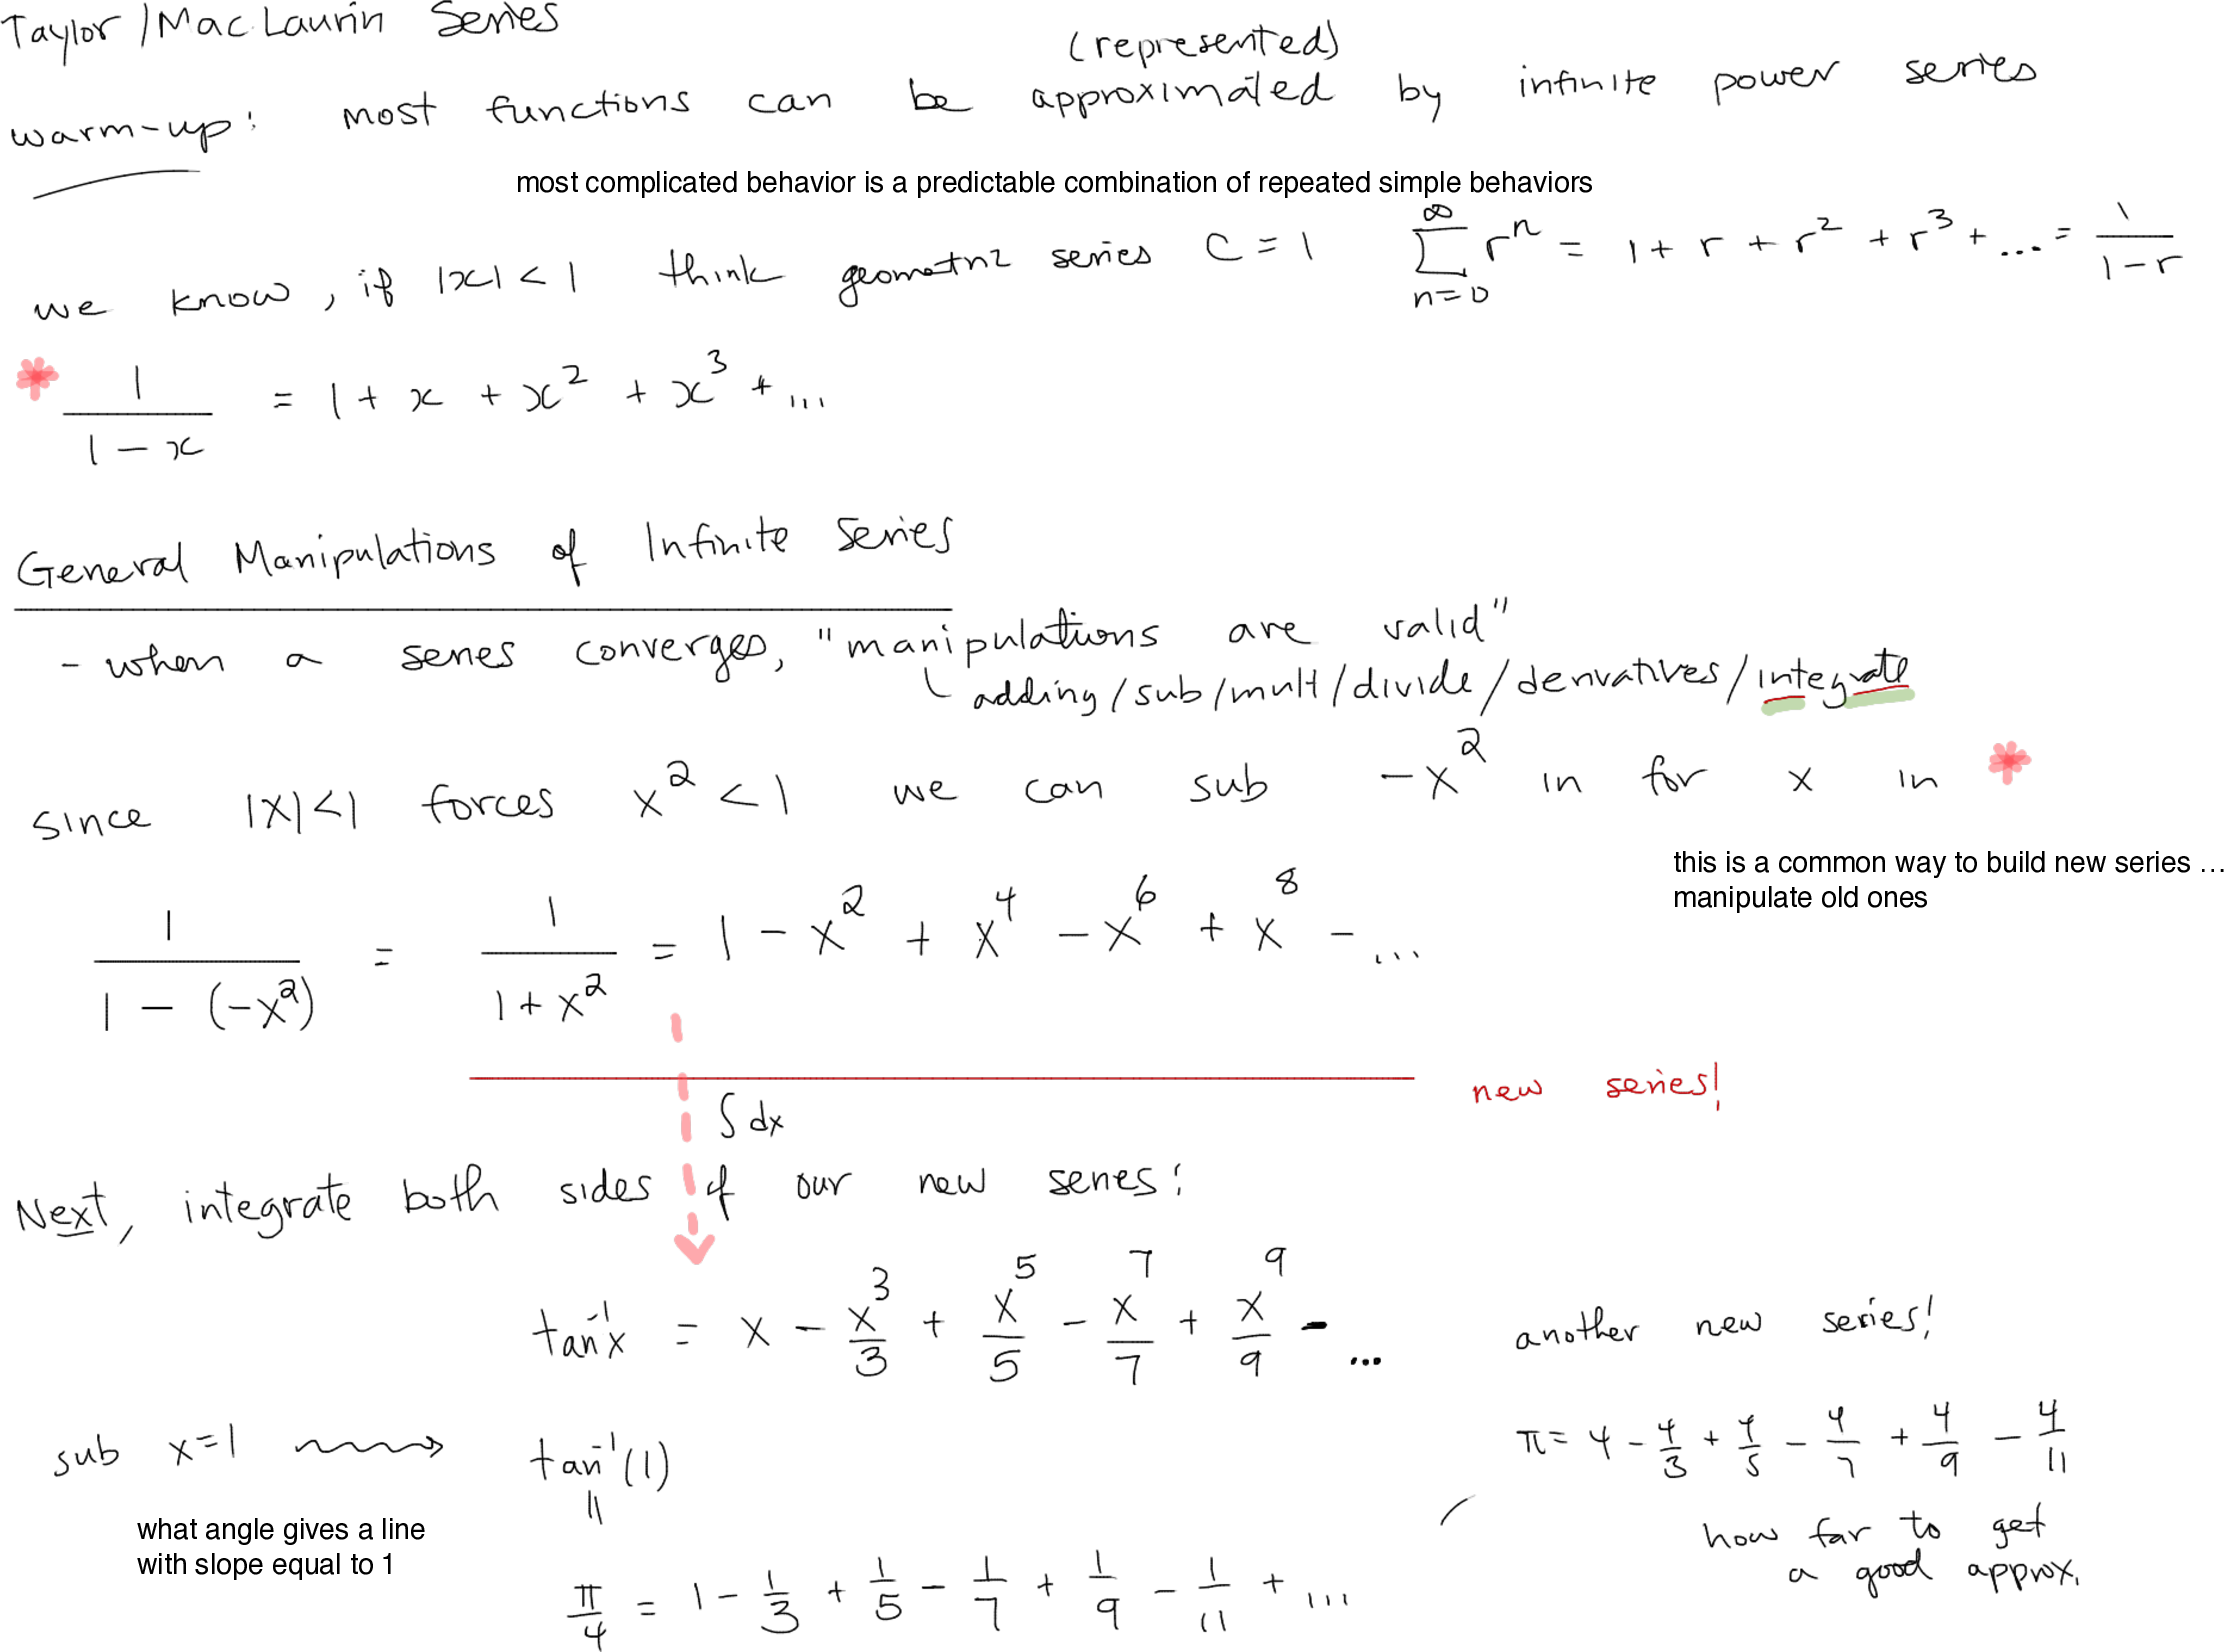 Taylor/MacLaurin Series
(represented)
warm-up: most functions can be approximated by infinite power series
most complicated behavior is a predictable combination of repeated simple behaviors
we know, if |x| < 1 think geometric series C = 1 ∑_{n=0}^{∞} r^n = 1 + r + r^2 + r^3 + ... = 1/(1-r)
* 1/(1-x) = 1 + x + x^2 + x^3 + ...
General Manipulations of Infinite Series
- when a series converges, "manipulations are valid"
adding/sub/mult/divide/derivatives/integrate
since |x|<1 forces x^2 < 1 we can sub -x^2 in for x in *
this is a common way to build new series ...
manipulate old ones
1/(1-(-x^2)) = 1/(1+x^2) = 1 - x^2 + x^4 - x^6 + x^8 - ...
new series!
∫dx
Next, integrate both sides of our new series:
tan^-1 x = x - x^3/3 + x^5/5 - x^7/7 + x^9/9 - ...
another new series!
sub x=1 tan^-1(1)
=
π = 4 - 4/3 + 4/5 - 4/7 + 4/9 - 4/11
what angle gives a line
with slope equal to 1
how far to get
a good approx.
π/4 = 1 - 1/3 + 1/5 - 1/7 + 1/9 - 1/11 + ...